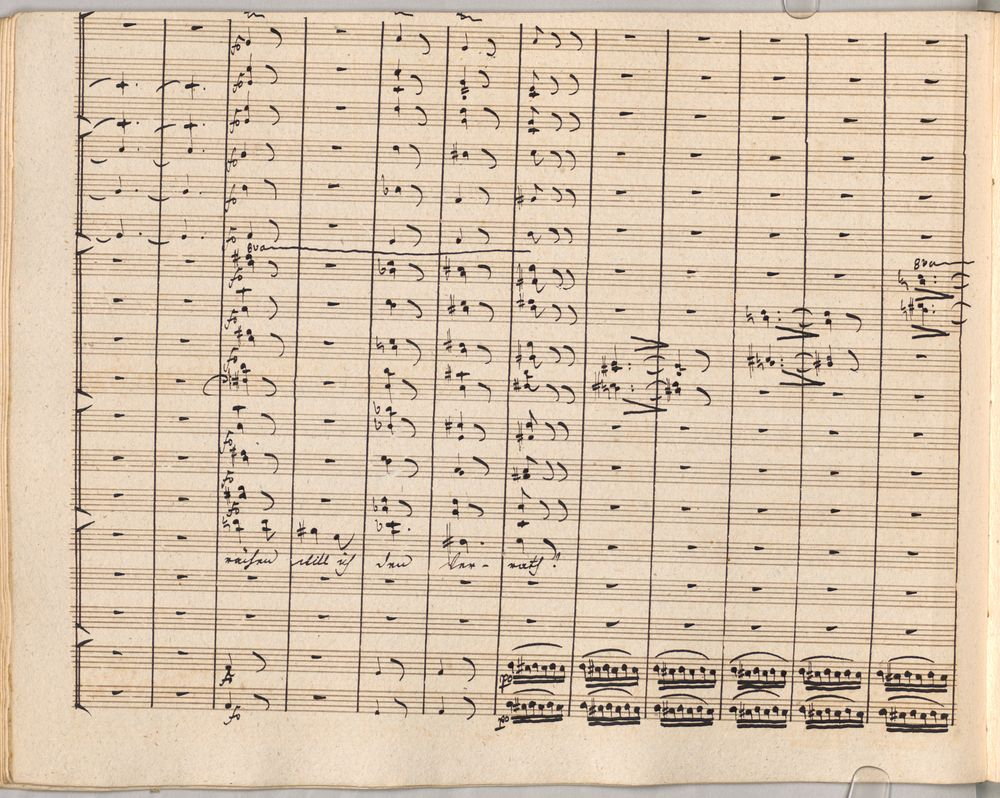 fo
fo
fo
fo
fo
fo
8va
8va
fo
fo
fo
fo
fo
fo
rächen will ich den Ver- rath!
fo
po
fo
po